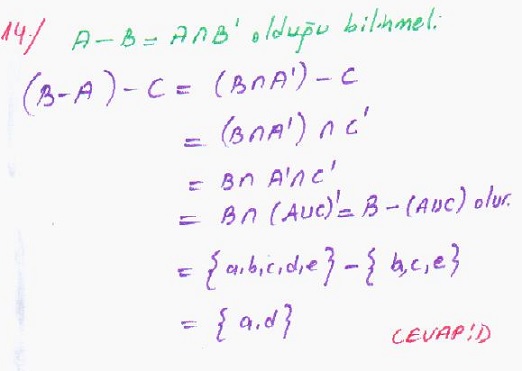 14/ A-B = A∩B' olduğu bilinmeli
(B-A)-C = (B∩A')-C
= (B∩A')∩C'
= B∩A'∩C'
= B∩(AUC)' = B-(AUC) olur.
= {a,b,c,d,e}-{b,c,e}
= {a,d}
CEVAP:D